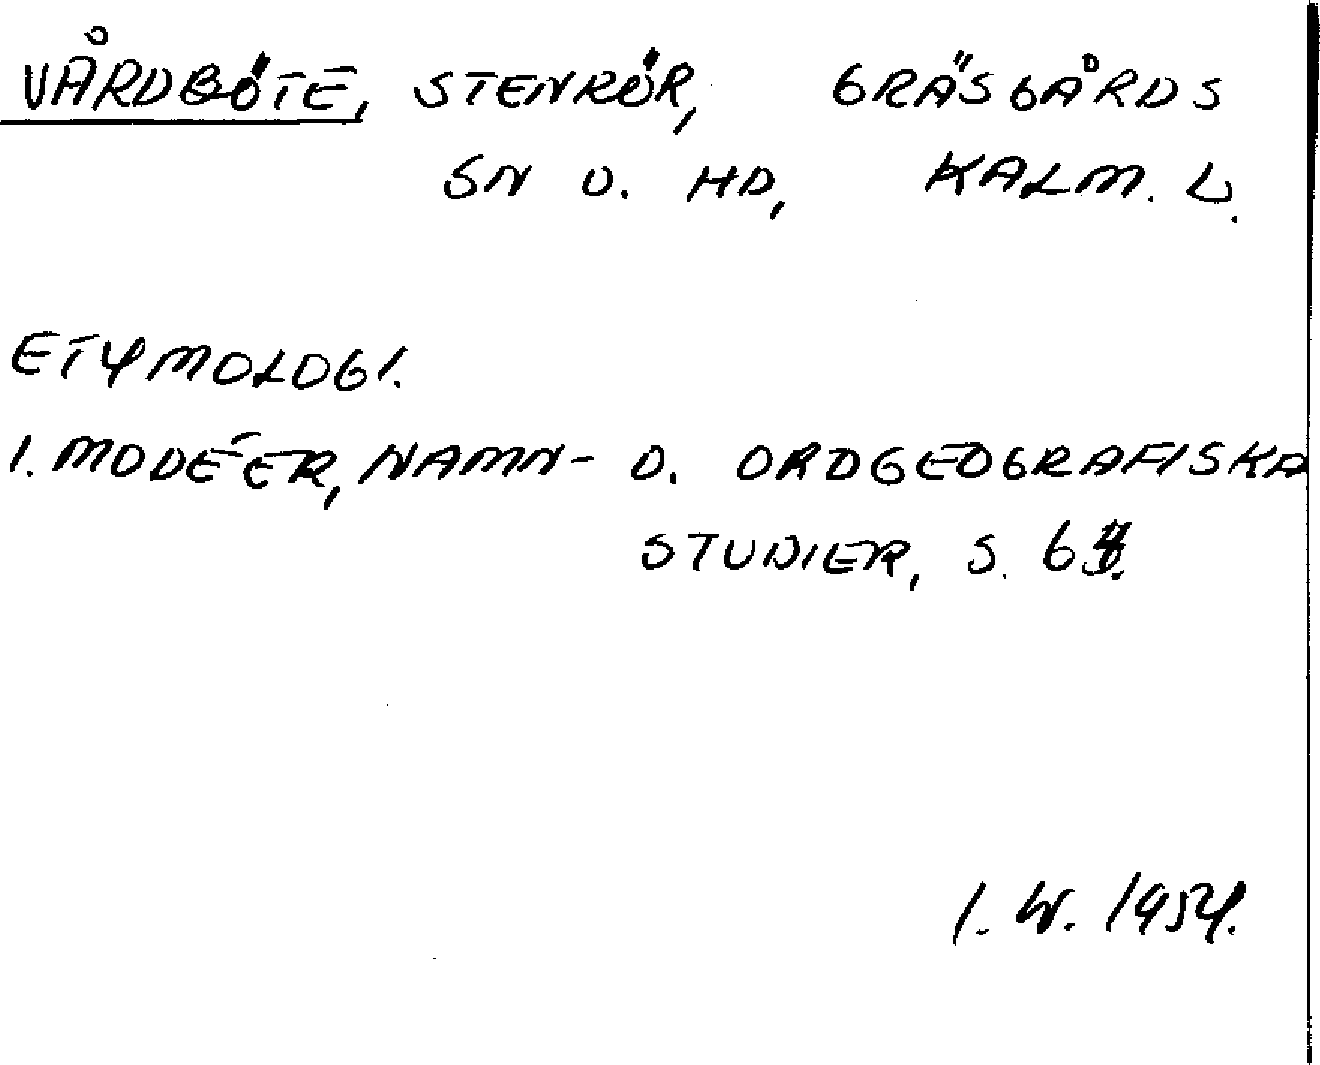 VÅRDBÖTE, STENRÖR, GRÄSGÅRDS
SN O. HD, KALM. L.
ETYMOLOGI.
I. MODÉER, NAMN- O. ORDGEOGRAFISKA
STUDIER, S.
I. W. 1954.